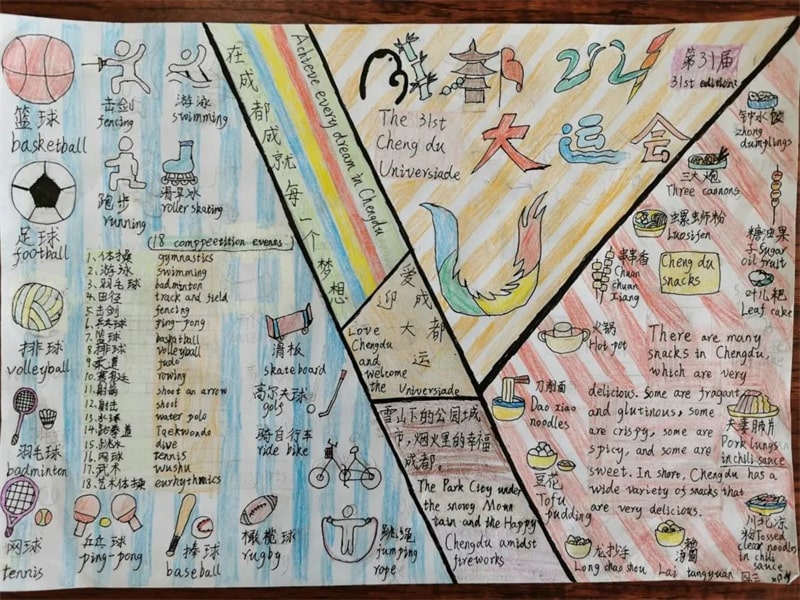 篮球
basketball
击剑
fencing
游泳
swimming
足球
football
跑步
running
滑旱冰
roller skating
排球
volleyball
羽毛球
badminton
网球
tennis
乒乓球
ping-pong
棒球
baseball
橄榄球
rugby
跳绳
jumping
rope
滑板
skateboard
高尔夫球
golf
骑自行车
ride bike
(18 comppetition events)
1.体操 gymnastics
2.游泳 swimming
3.羽毛球 badminton
4.田径 track and field
5.击剑 fencing
6. ping-pong
7.篮球 basketball
8.排球 volleyball
9.柔道 judo
10. rowing
11.射箭 shoot an arrow
12.射击 shoot
13.水球 water polo
14.跆拳道 Taekwondo
15.跳水 dive
16.网球 tennis
17.武术 wushu
18.艺术体操 eurhythmics
在成都成就每一个梦想
Achieve every dream in Chengdu
都
第31届
31st edition
The 31st
Cheng du
Universiade
大运会
爱成都
迎大运
Love
Chengdu
and
welcome
the Universiade
雪山下的公园城
市,烟火里的幸福
成都。
The Park City under
the snowy Moun
tain and the Happy
Chengdu amidst
fireworks
钟水饺
zhong
dumplings
三大炮
Three cannons
螺蛳粉
Luosifen
糖油果
子Sugar
oil fruit
串串香
Chuan
chuan
Xiang
Cheng du
snacks
叶儿粑
Leaf cake
火锅
Hot pot
刀削面
Dao xiao
noodles
There are many
snacks in Chengdu,
which are very
delicious. Some are fragant
and glutinous, some
are crispy, some are
spicy, and some are
sweet. In short, Chengdu has a
wide variety of snacks that
are very delicious.
夫妻肺片
Pork lungs
in chili sauce
豆花
Tofu
pudding
龙抄手
Long chao shou
赖汤圆
Lai tangyuan
川北凉
粉Tossed
clear noodles
in chili
sauce